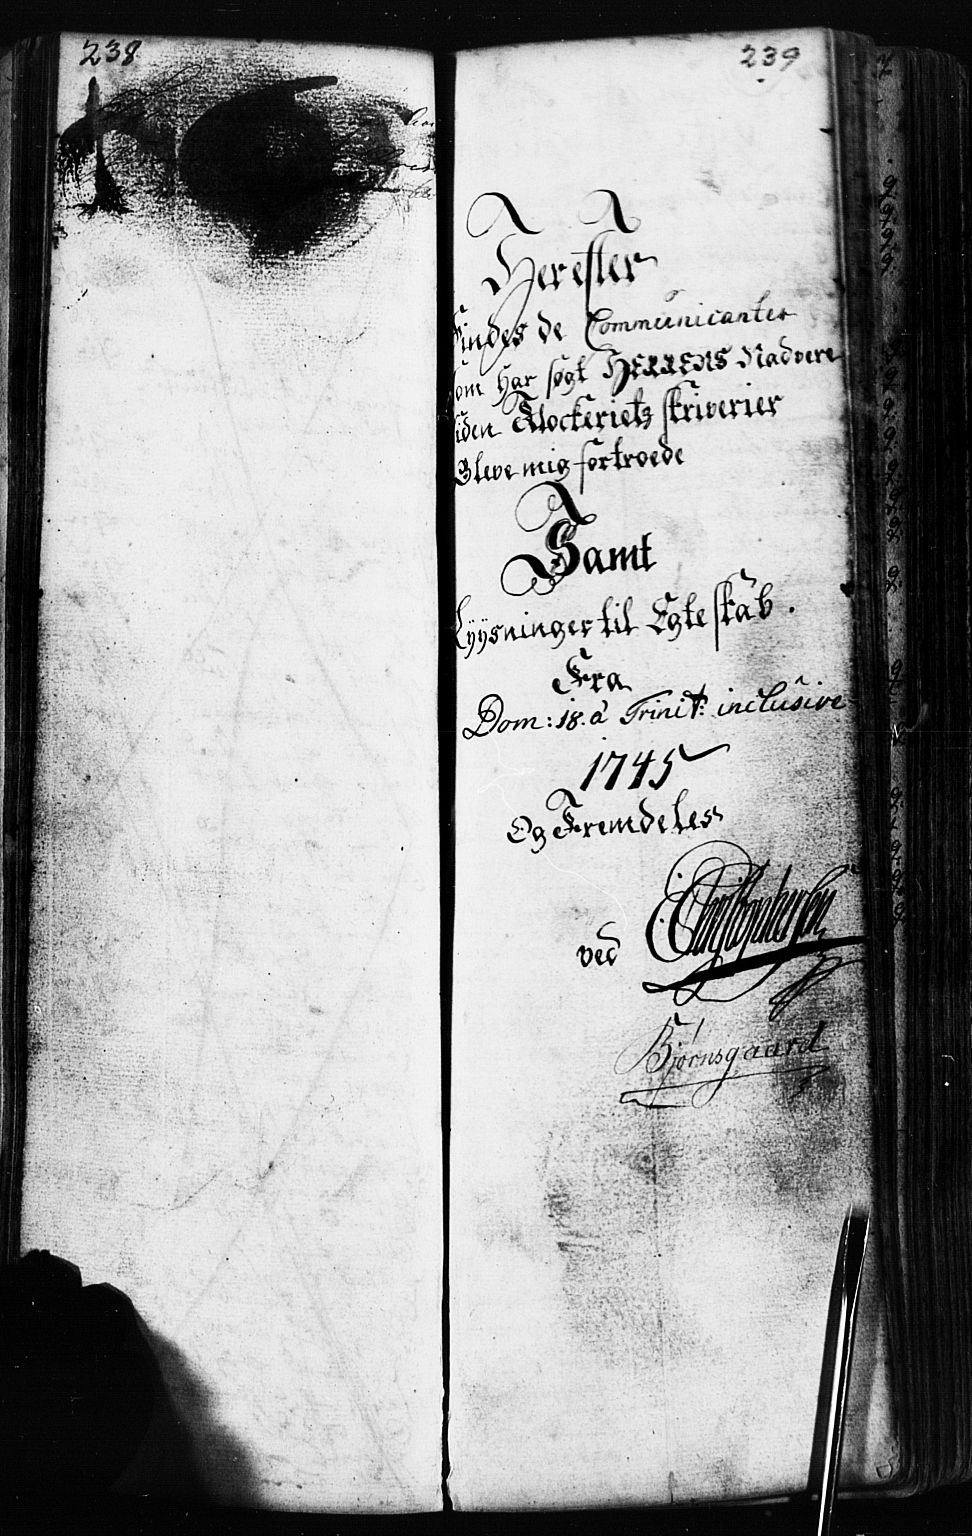 238
239
Her efter
Findes de Communicanter
som har søgt HERRENS Nadvere
siden Klockeriets skriverier
Bleve mig fortroede
Samt
Lyysninger til Egteskab.
Fra
Dom: 18. à Trinit: inclusive
1745
Og Fremdeles
ved Christophersen
Bjørnsgaard